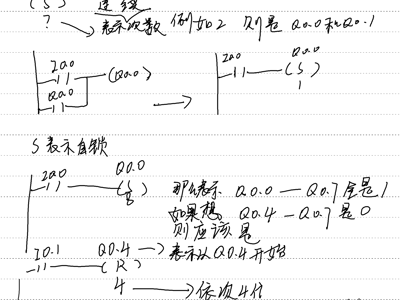 (S) 连续
? 表示次数 例如2 则是 Q0.0和Q0.1
I0.0 (Q0.0) I0.0 Q0.0
(S)
Q0.0 1
S表示自锁
I0.0 Q0.0
(S) 那么表示 Q0.0—Q0.7全是1
8 如果想 Q0.4—Q0.7是0
则应该是
I0.1 Q0.4 表示从Q0.4开始
(R)
4 依次4位